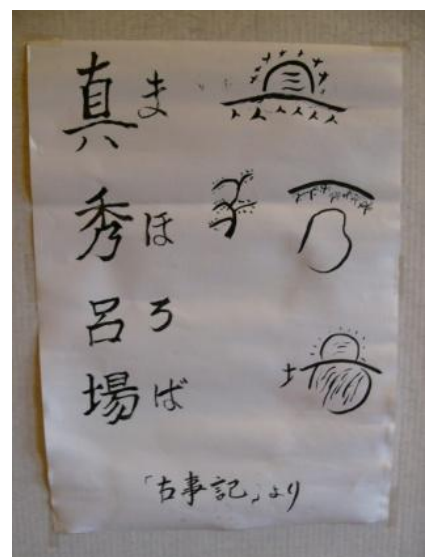 真 ま
秀 ほ
呂 ろ
場 ば
「古事記」より